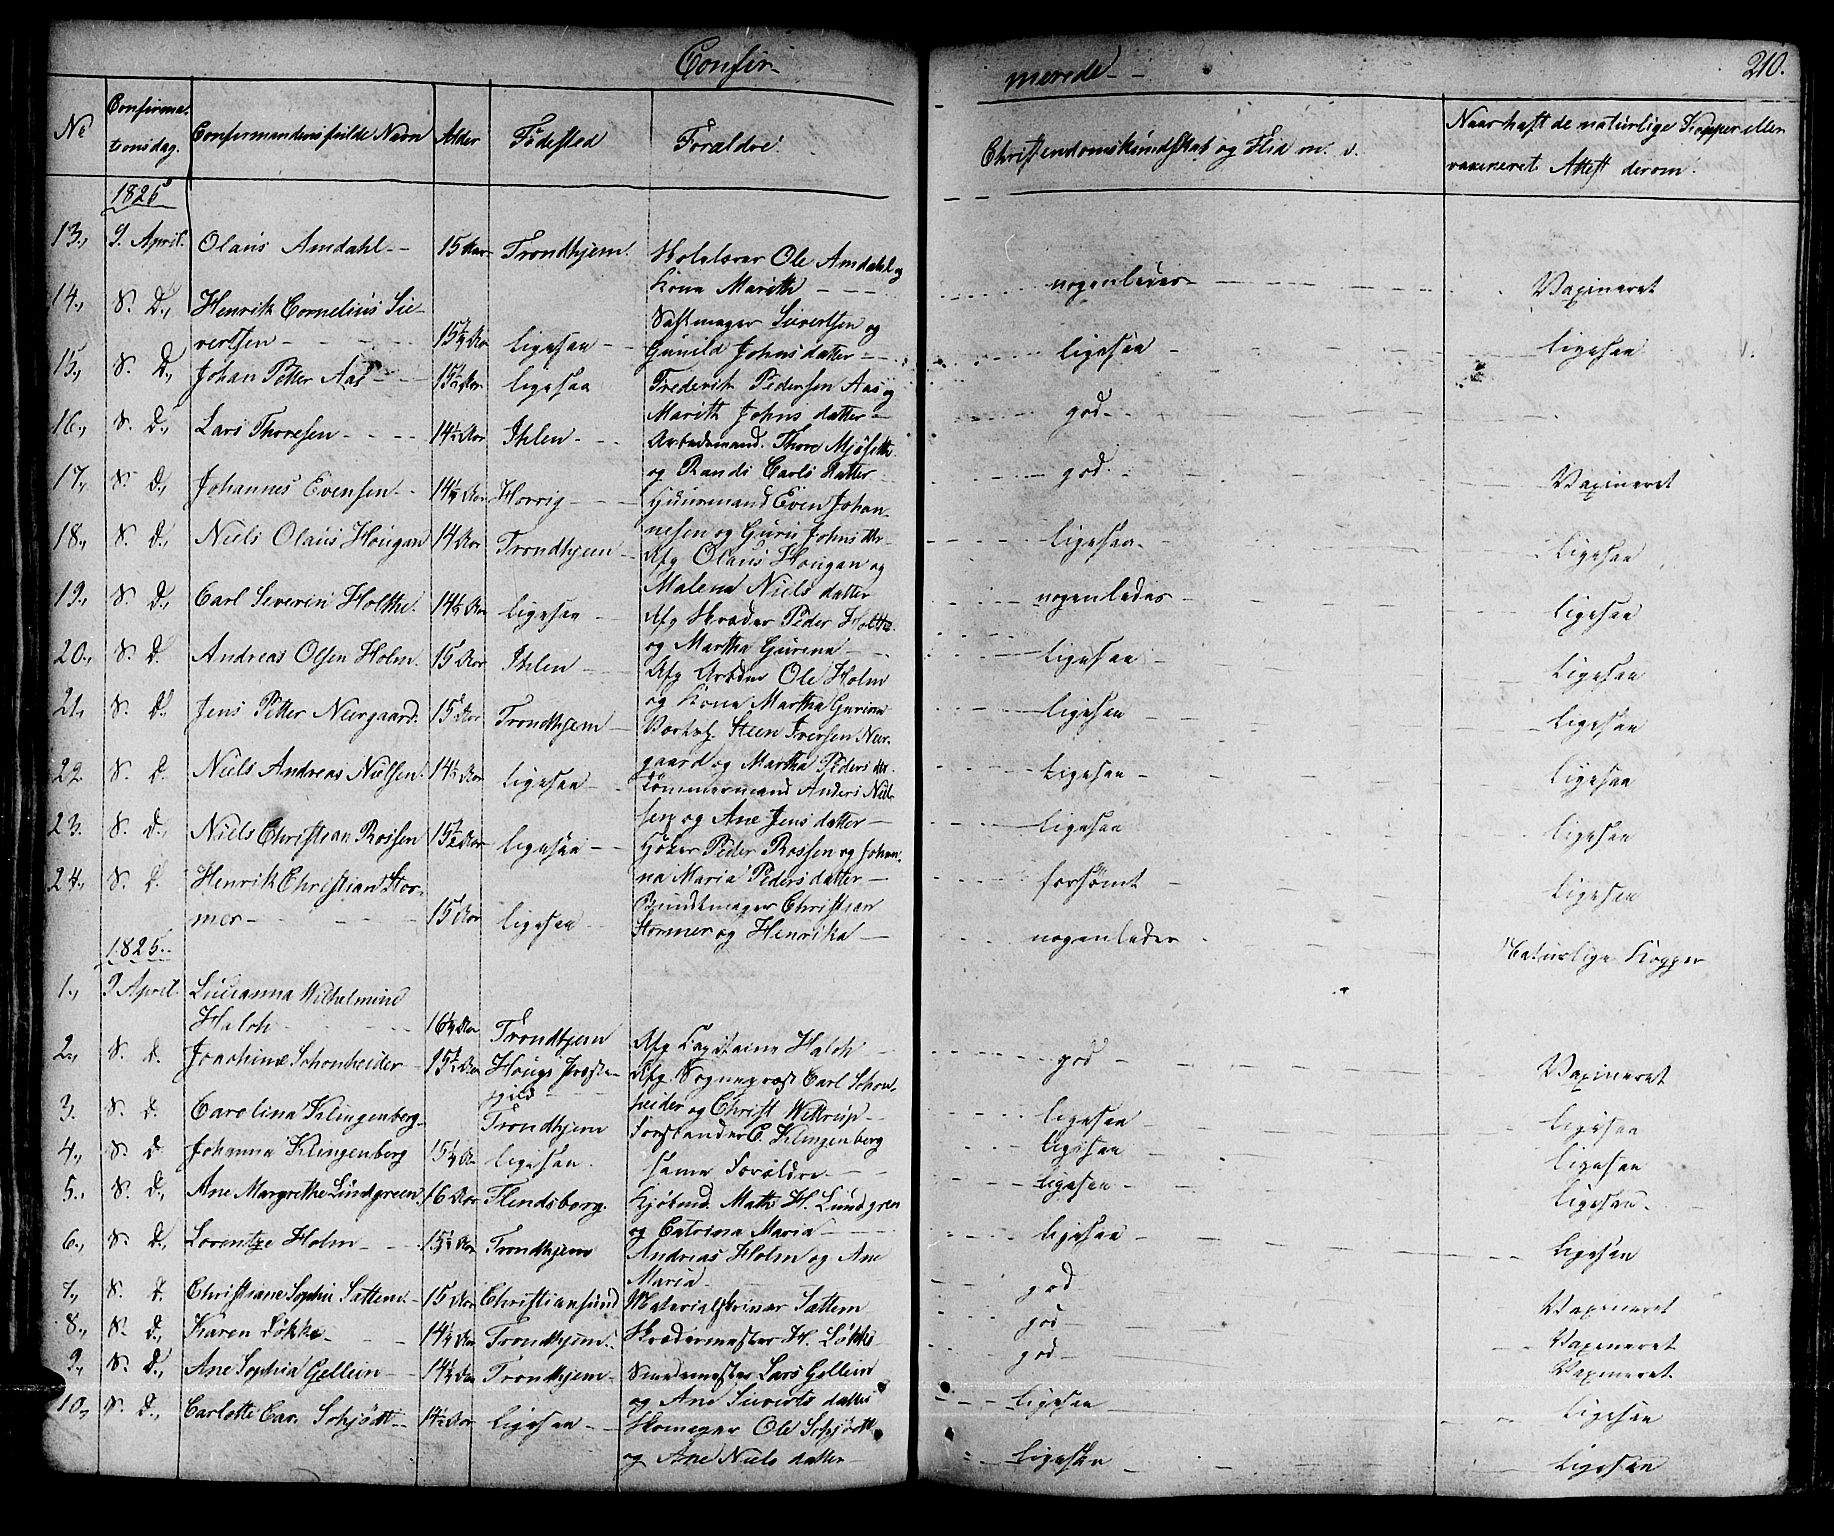 Confir- merede - -
210.
No Confirma- tionsdag. Confirmandens fulde Navn Alder Födested Foraldre. Christendomskundskab og Flid m. v. Naar haft de naturlige Kopper eller vaxineret. Attest derom.
1825
13., 9. April. Olaus Amdahl - - 15 Aar Trondhjem. Ole Amdahl og
Kone Marith - - - nogenledes - Vaxineret
14., S. D., Henrik Cornelius Sie-
vertsen - - - - 15¾ Aar ligesaa - - Saltmager Sivertsen og
Gunild Johnsdatter - ligesaa - ligesaa
15., S. D., Johan Petter Aas - - 15½ Aar ligesaa Frederik Pedersen Aas og
Marith Johns datter - god - -
16., S. D., Lars Thoresen - - - 14½ Aar Ihlen - - Arbeidsmand Thore
og Randi Carls datter god - Vaxineret
17., S. D., Johannes Evensen - - 14¼ Aar Horrig - - Huusmand Even Johan-
nesen og Guru Johns dtr - ligesaa - ligesaa
18., S. D., Niels Olaus Hougan 14 Aar Trondhjem - Afg Olaus Hougan og
Malena Niels datter nogenledes ligesaa
19., S. D., Carl Severin Holthe. 14½ Aar ligesaa - - Afg Skræder Peder Holthe
og Martha Gurina - - ligesaa - ligesaa
20., S. D. Andreas Olsen Holm. 15 Aar Ihlen - - Afg Arbdm Ole Holm
og Kone Martha Gurina ligesaa ligesaa
21., S. D., Jens Petter Neergaard. 15 Aar Trondhjem - Steen Iversen Neer-
gaard og Martha Peders dtr. ligesaa - ligesaa
22. S. D. Niels Andreas Nielsen. 14½ Aar ligesaa - - Tömmermand Anders Niel-
sen og Ane Jens datter - ligesaa ligesaa
23. S. D., Niels Christian Rossen 15½ Aar ligesaa - - Höker Peder Rossen og Johan-
na Maria Peders datter - forsömt - ligesaa
24., S. D. Henrik Christian Stor-
mer - - - 15 Aar ligesaa - Bundtmager Christian
Stormer og Henrika - nogenledes - Naturlige Kopper
1825.
1., 9 April. Lucianna Wilhelmine
Halch - - - 16¼ Aar Trondhjem Afg Capitaine Halch - god - Vaxineret
2., S. D. Joachime Schonheider - 15½ Aar Hougs Præste-
gild - - Afg. Sognepræst Carl Schon-
heider og Christ Wittrup - ligesaa - ligesaa
3. S. D. Carolina Klingenberg - Trondhjem Forstander C. Klingenberg ligesaa ligesaa
4., S. D. Johanna Klingenberg 15¼ Aar ligesaa. samme Foraldre - - ligesaa - ligesaa -
5., S. D., Ane Margrethe Lundgreen 16 Aar Flensborg. Kjöbmd. Math. H. Lundgren
og Catrina Maria - - ligesaa - ligesaa
6., S. D., Lorentze Holm - - 15½ Aar Trondhjem Andreas Holm og Ane
Maria - god Vaxineret
7., S. D. Christiane Sophie Sattem - 15 Aar Christiansund Materialskriver Sattem god - Vaxineret
8., S. D., Karen Lökke - - 14¼ Aar Trondhjem. Skrædermester H. Lökke god - Vaxineret.
9., S. D., Ane Sophia Gellein - 14¼ Aar Trondhjem - Smedmester Lars Gellein
og Ane Siverts datter ligesaa ligesaa
10., S. D., Carlotte Car. Schjödt - 14½ Aar ligesaa - - Skomager Ole Schjödt
og Ane Niels datter - ligesaa ligesaa